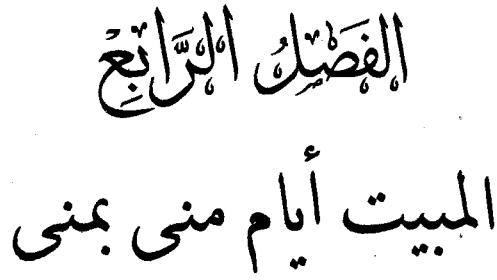 الفَصْلُ الرَّابِعُ
المبيت أيام منى بمنى